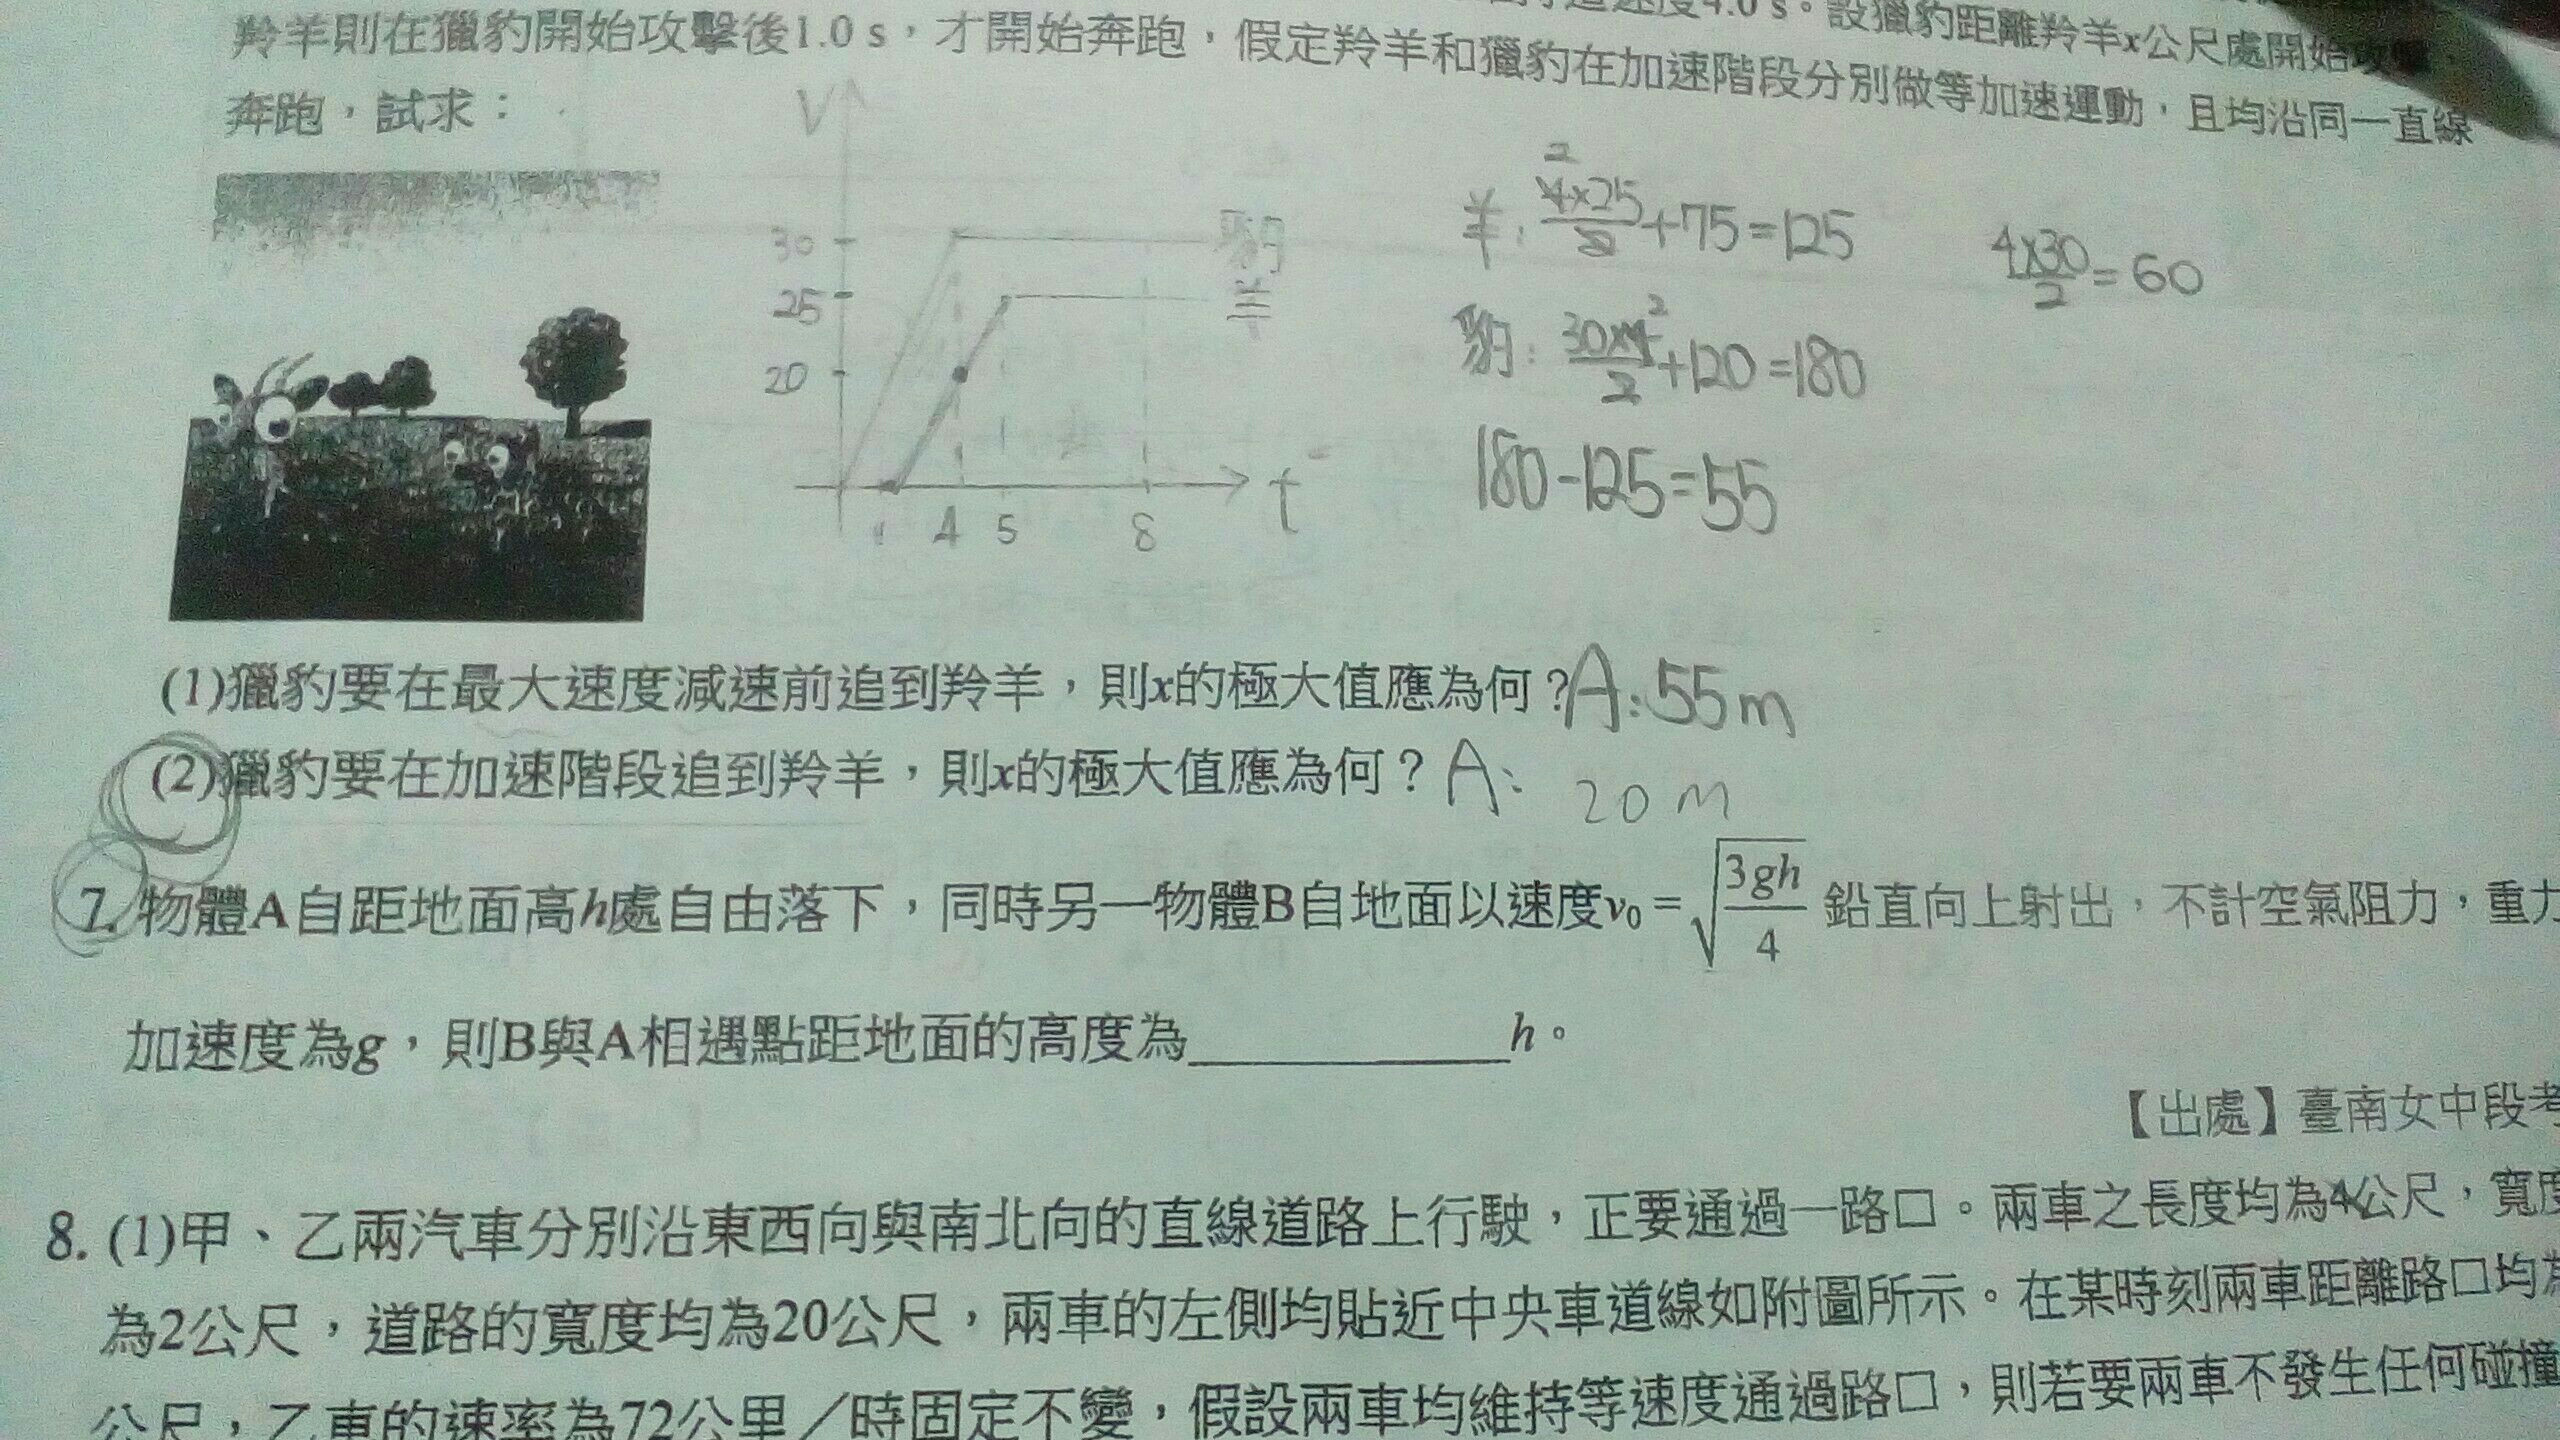 道速度4.0 s。設獵豹距離羚羊x公尺處開始攻
羚羊則在獵豹開始攻擊後1.0 s，才開始奔跑，假定羚羊和獵豹在加速階段分別做等加速運動，且均沿同一直線
奔跑，試求：
V
30
25
20
豹
羊
1 4 5 8 t
羊: 4×25/2 2 +75=125
4×30/2 = 60
豹: 30×4/2 2 +120=180
180-125=55
(1)獵豹要在最大速度減速前追到羚羊，則x的極大值應為何？A:55m
(2)獵豹要在加速階段追到羚羊，則x的極大值應為何？A: 20 m
7. 物體A自距地面高h處自由落下，同時另一物體B自地面以速度v₀=√(3gh/4) 鉛直向上射出，不計空氣阻力，重力
加速度為g，則B與A相遇點距地面的高度為____________h。
【出處】臺南女中段考
8. (1)甲、乙兩汽車分別沿東西向與南北向的直線道路上行駛，正要通過一路口。兩車之長度均為4公尺，寬度
為2公尺，道路的寬度均為20公尺，兩車的左側均貼近中央車道線如附圖所示。在某時刻兩車距離路口均為
公尺，乙車的速率為72公里／時固定不變，假設兩車均維持等速度通過路口，則若要兩車不發生任何碰撞